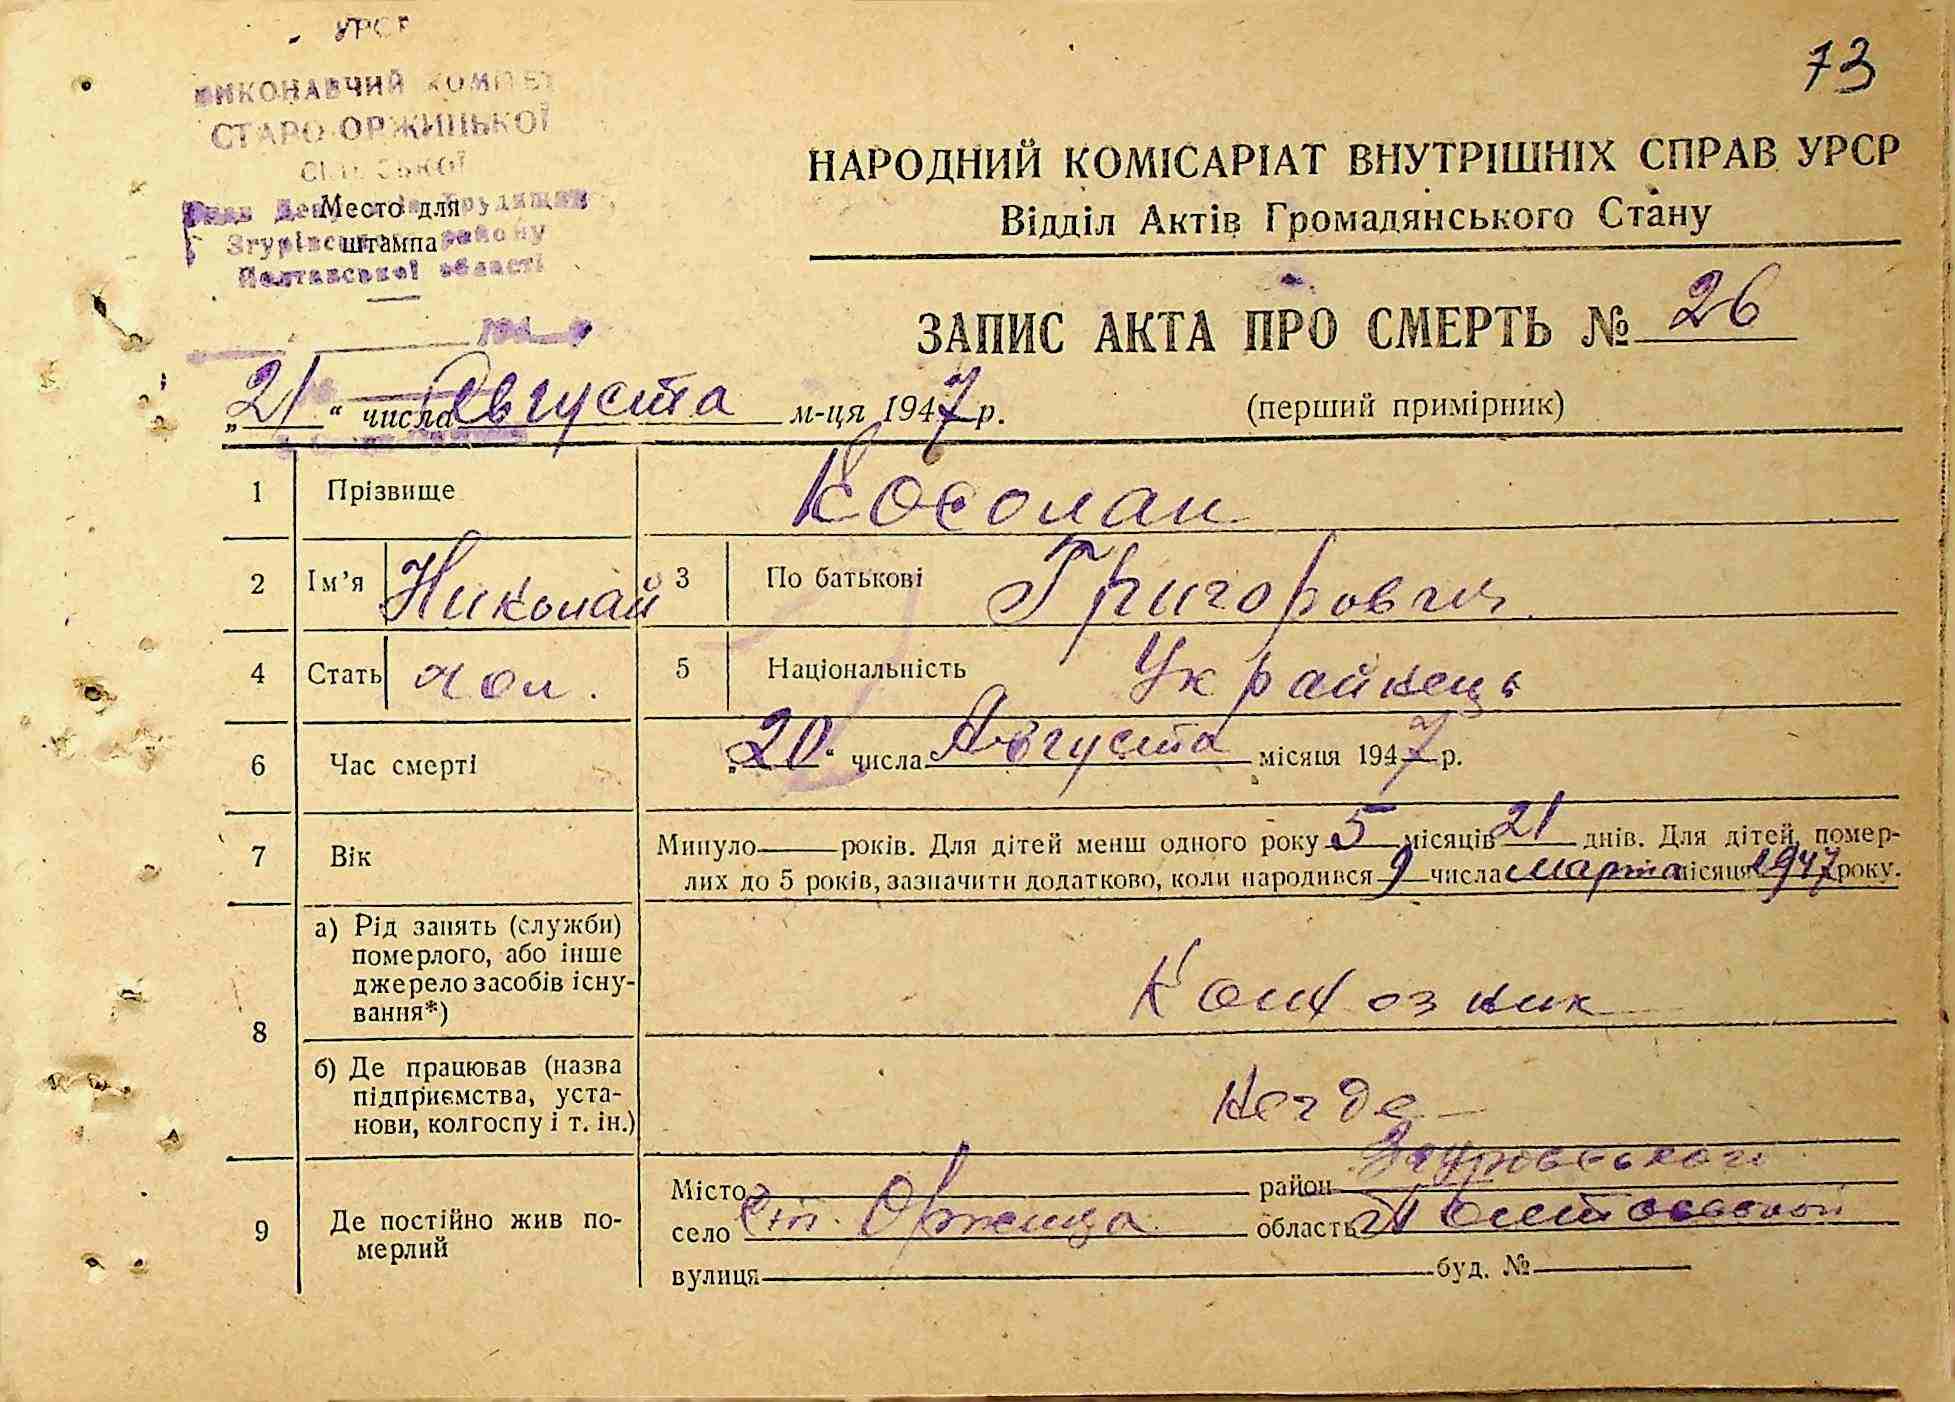 УРСР
73
ВИКОНАВЧИЙ КОМІТЕТ
СТАРО-ОРЖИЦЬКОЇ
СІЛЬСЬКОЇ
Ради Депутатів Трудящих
Место для
штампа
Згурівського району
Полтавської області
194
НАРОДНИЙ КОМІСАРІАТ ВНУТРІШНІХ СПРАВ УРСР
Відділ Актів Громадянського Стану
ЗАПИС АКТА ПРО СМЕРТЬ № 26
„21“ числа Августа м-ця 1947 р.
(перший примірник)
1 Прізвище Косолап
2 Ім’я Николай 3 По батькові Григорович
4 Стать чол. 5 Національність Українець
6 Час смерті „20“ числа Августа місяця 1947 р.
7 Вік Минуло — років. Для дітей менш одного року 5 місяців 21 днів. Для дітей, помер-
лих до 5 років, зазначити додатково, коли народився 9 числа марта місяця 1947 року.
8 а) Рід занять (служби)
померлого, або інше
джерело засобів існу-
вання*)
Колхозник
б) Де працював (назва
підприємства, уста-
нови, колгоспу і т. ін.)
негде
9 Де постійно жив по-
мерлий
Місто район Згуровського
село Ст. Оржица область Полтавской
вулиця буд. №